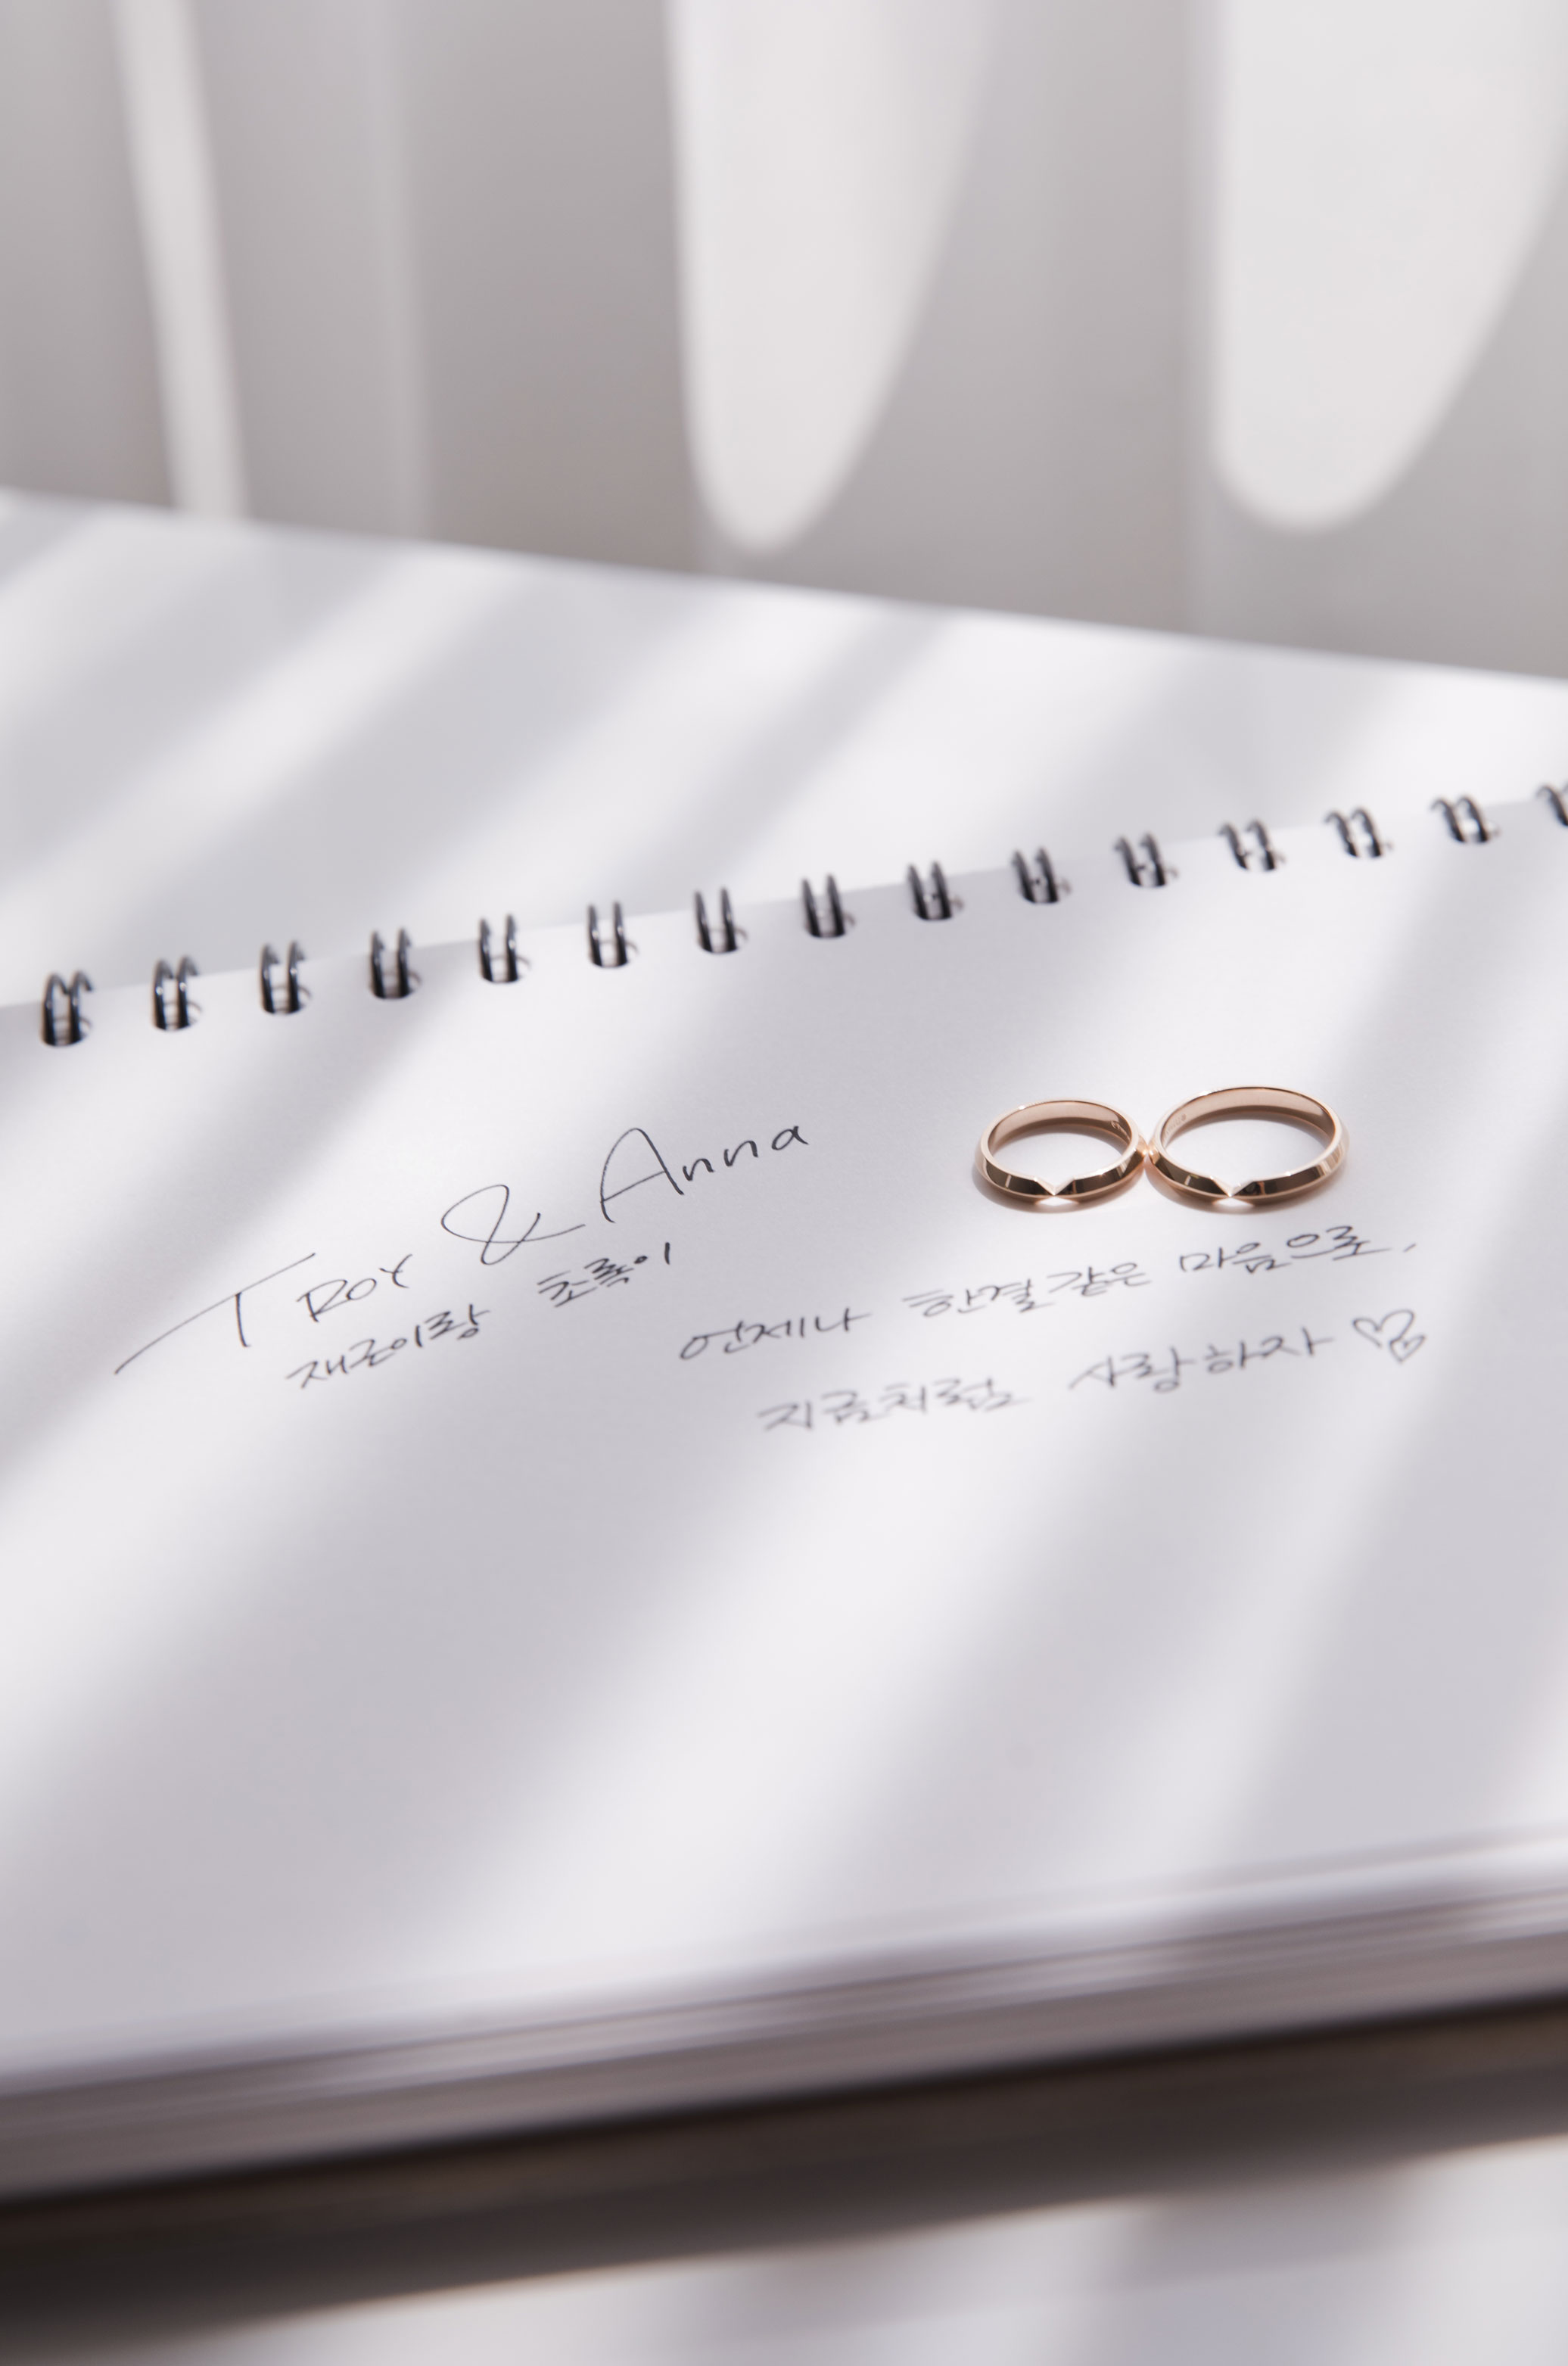 TROY & Anna
재근이랑 초록이
언제나 한결같은 마음으로,
지금처럼 사랑하자